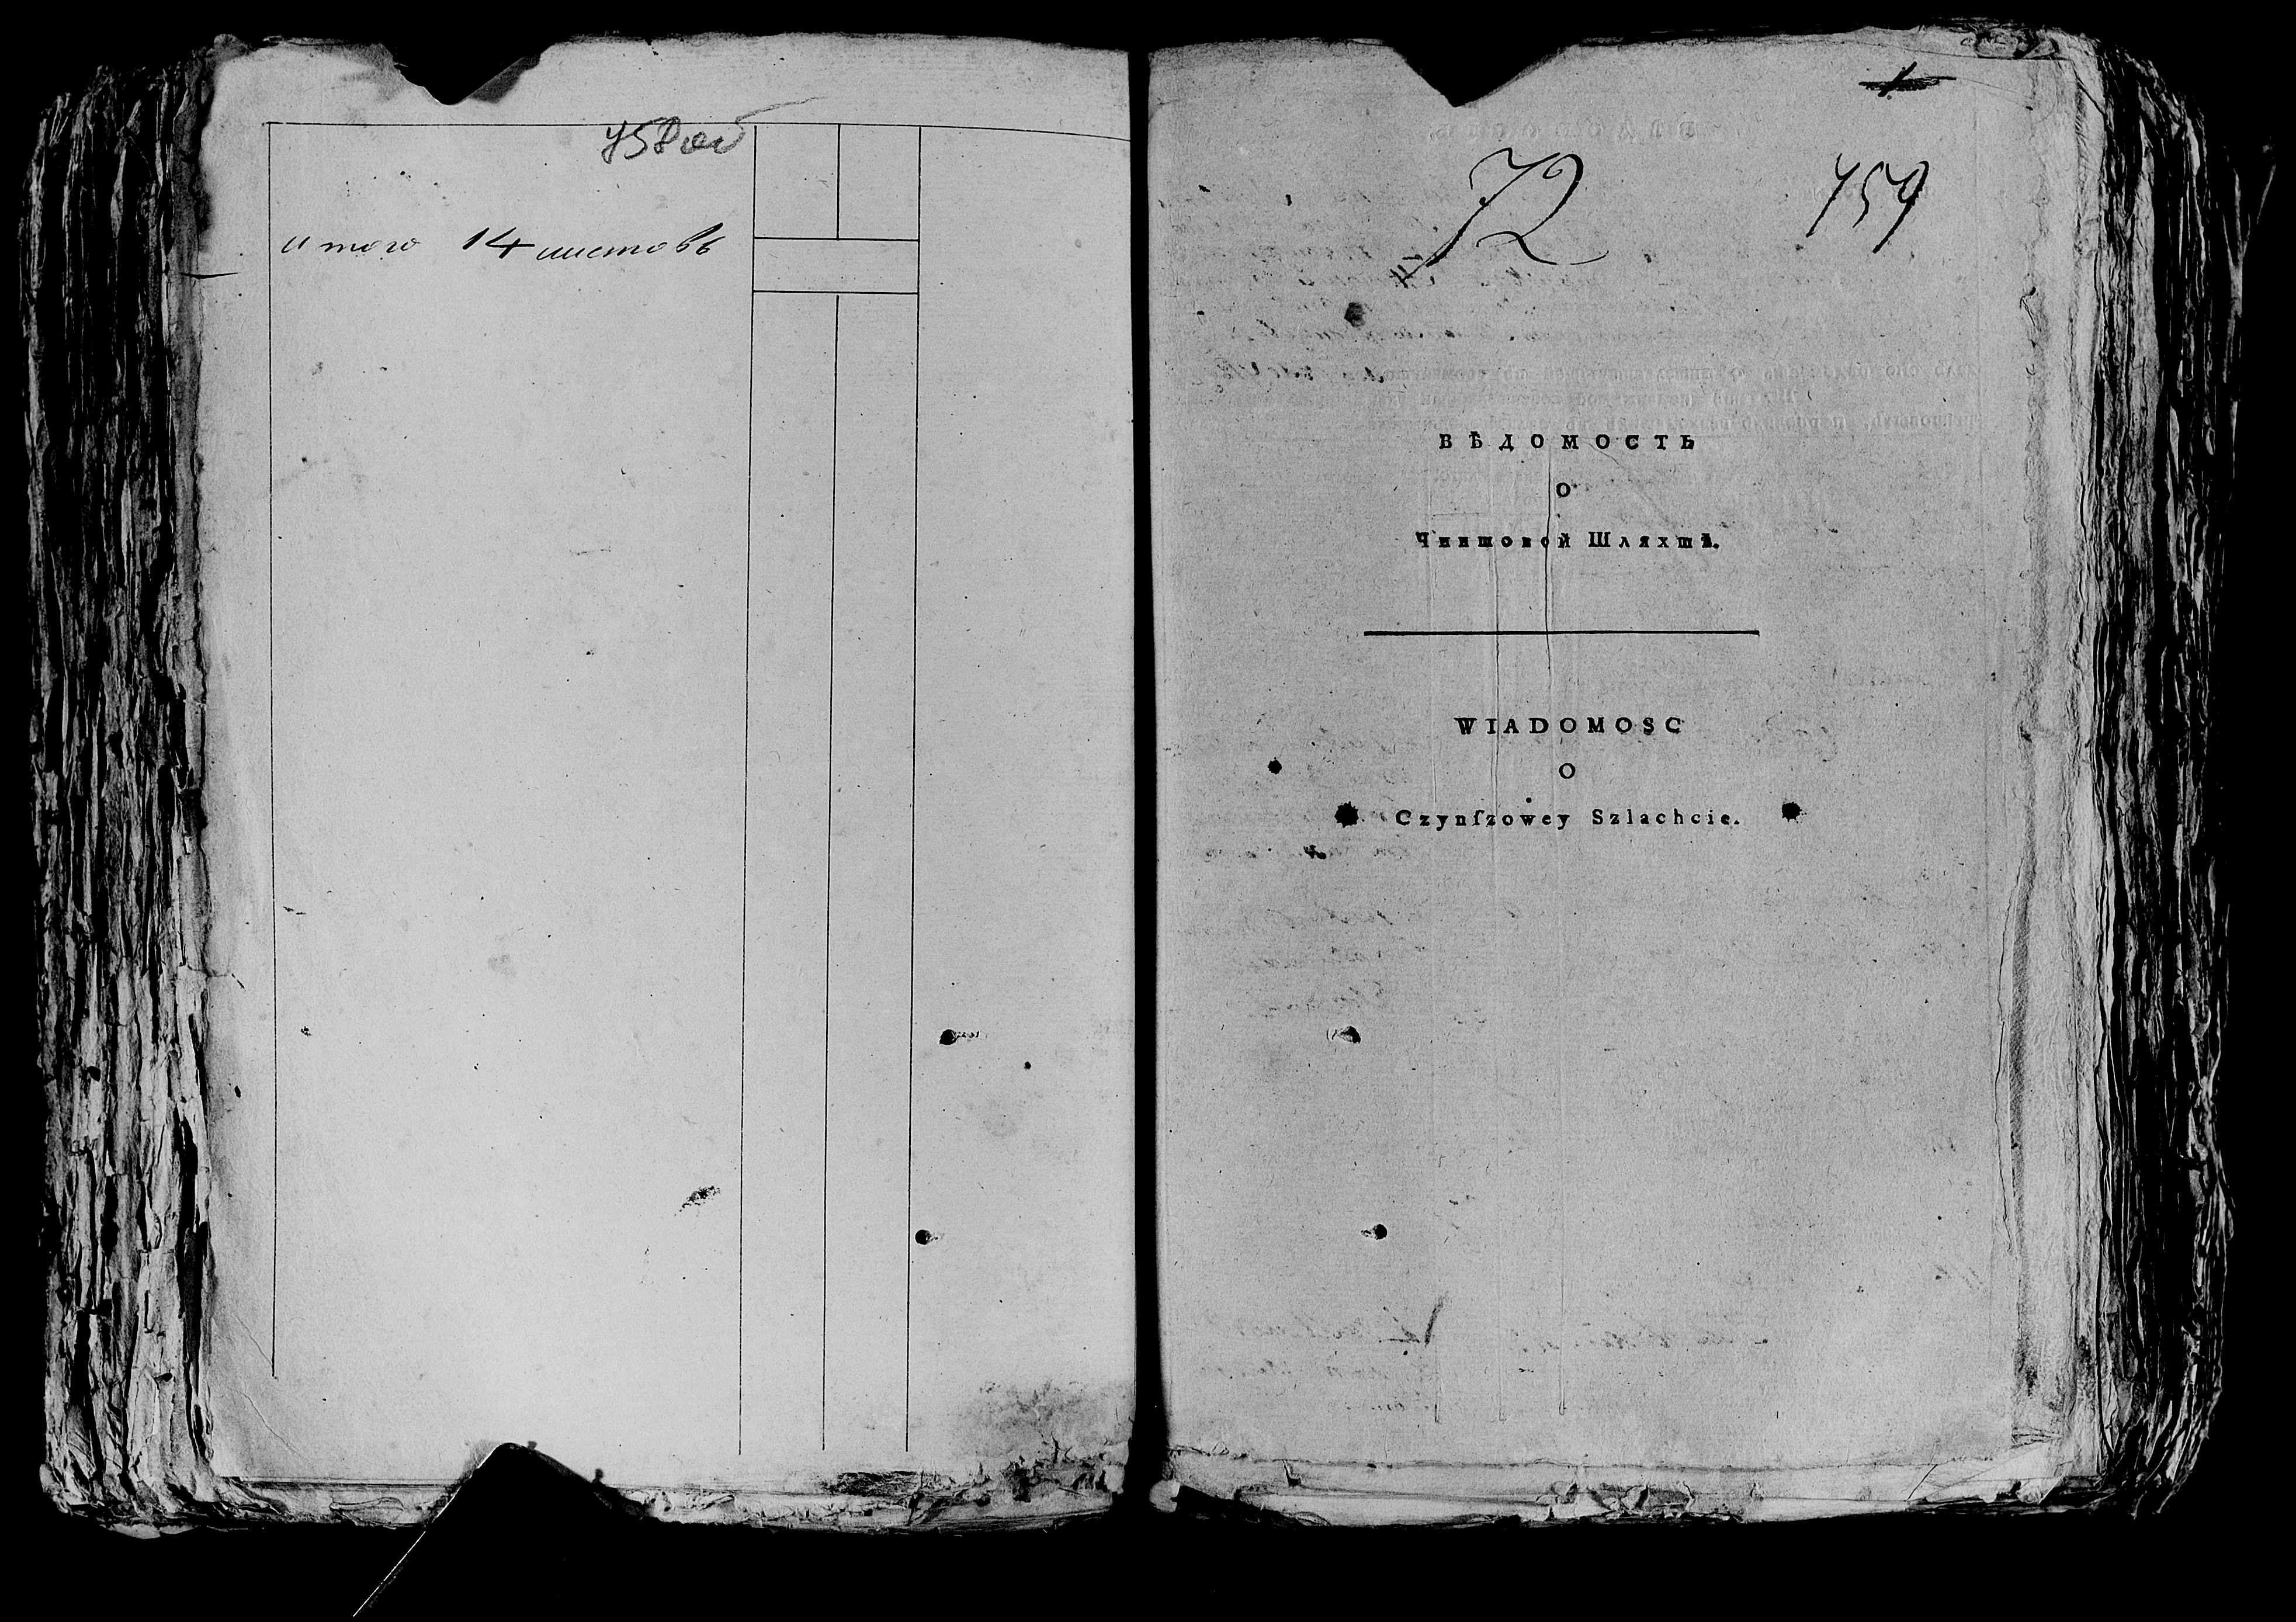 758 об
итого 14 листовъ
1
72
759
ВѢДОМОСТЬ
О
Чиншовой Шляхтѣ.
WIADOMOSC
O
Czynſzowey Szlachcie.